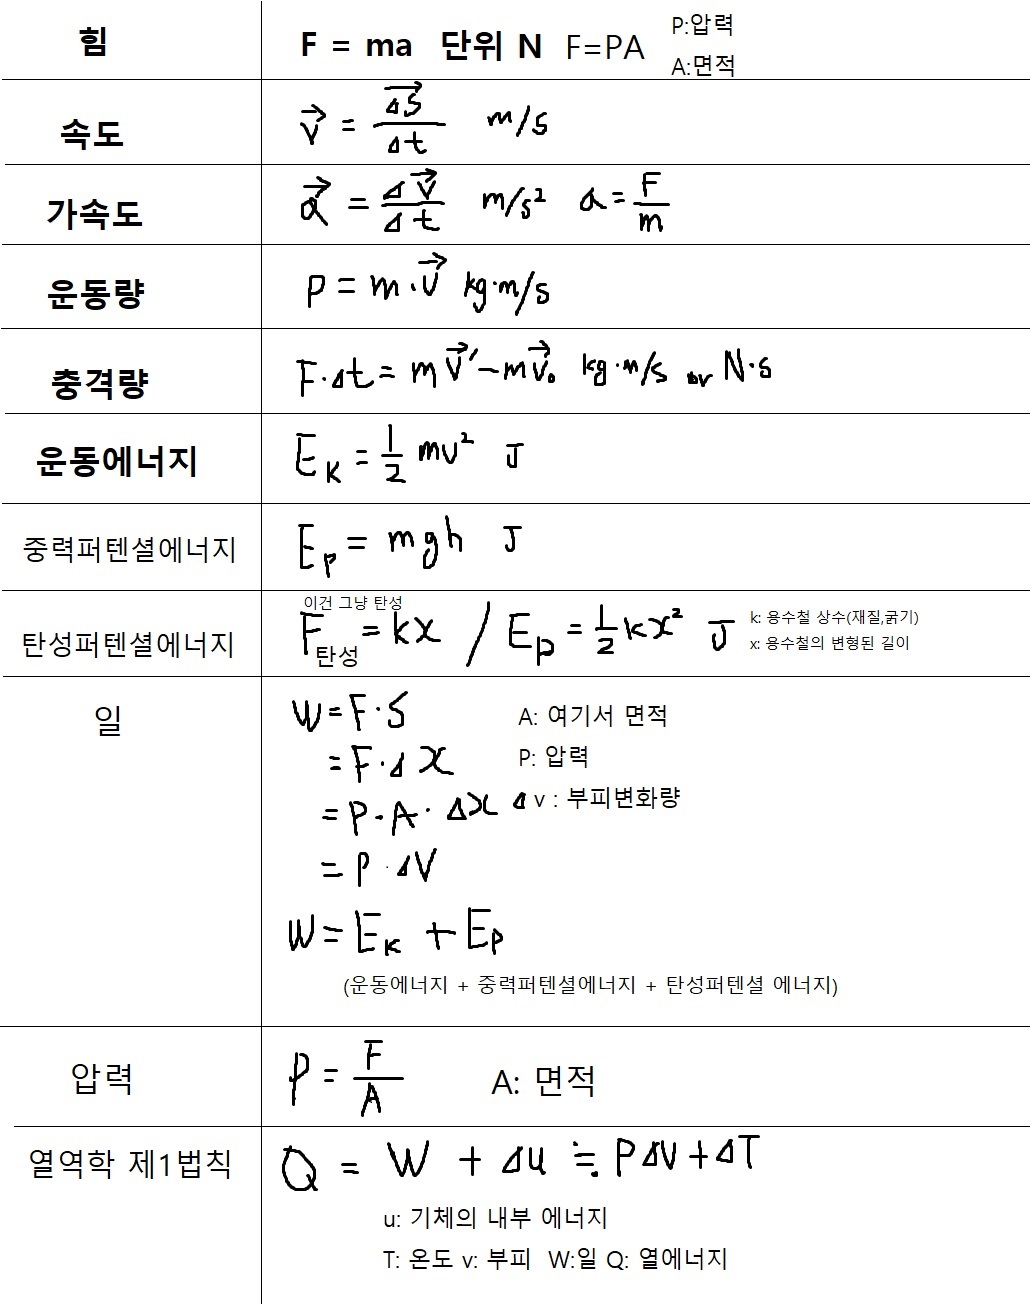 힘 F = ma 단위 N F=PA P:압력
A:면적
속도 v⃗ = Δs⃗/Δt m/s
가속도 a⃗ = Δv⃗/Δt m/s² a=F/m
운동량 P = m·v⃗ kg·m/s
충격량 F·Δt = mv⃗′-mv⃗₀ kg·m/s or N·s
운동에너지 E_K = 1/2 mv² J
중력퍼텐셜에너지 E_p = mgh J
이건 그냥 탄성
탄성퍼텐셜에너지 F탄성 = kx / E_p = 1/2 kx² J k: 용수철 상수(재질,굵기)
x: 용수철의 변형된 길이
일 W=F·S A: 여기서 면적
=F·Δx P: 압력
=P·A·Δx Δv : 부피변화량
=P·ΔV
W=E_K + E_P
(운동에너지 + 중력퍼텐셜에너지 + 탄성퍼텐셜 에너지)
압력 P = F/A A: 면적
열역학 제1법칙 Q = W + Δu ≒ PΔV+ΔT
u: 기체의 내부 에너지
T: 온도 v: 부피 W:일 Q: 열에너지